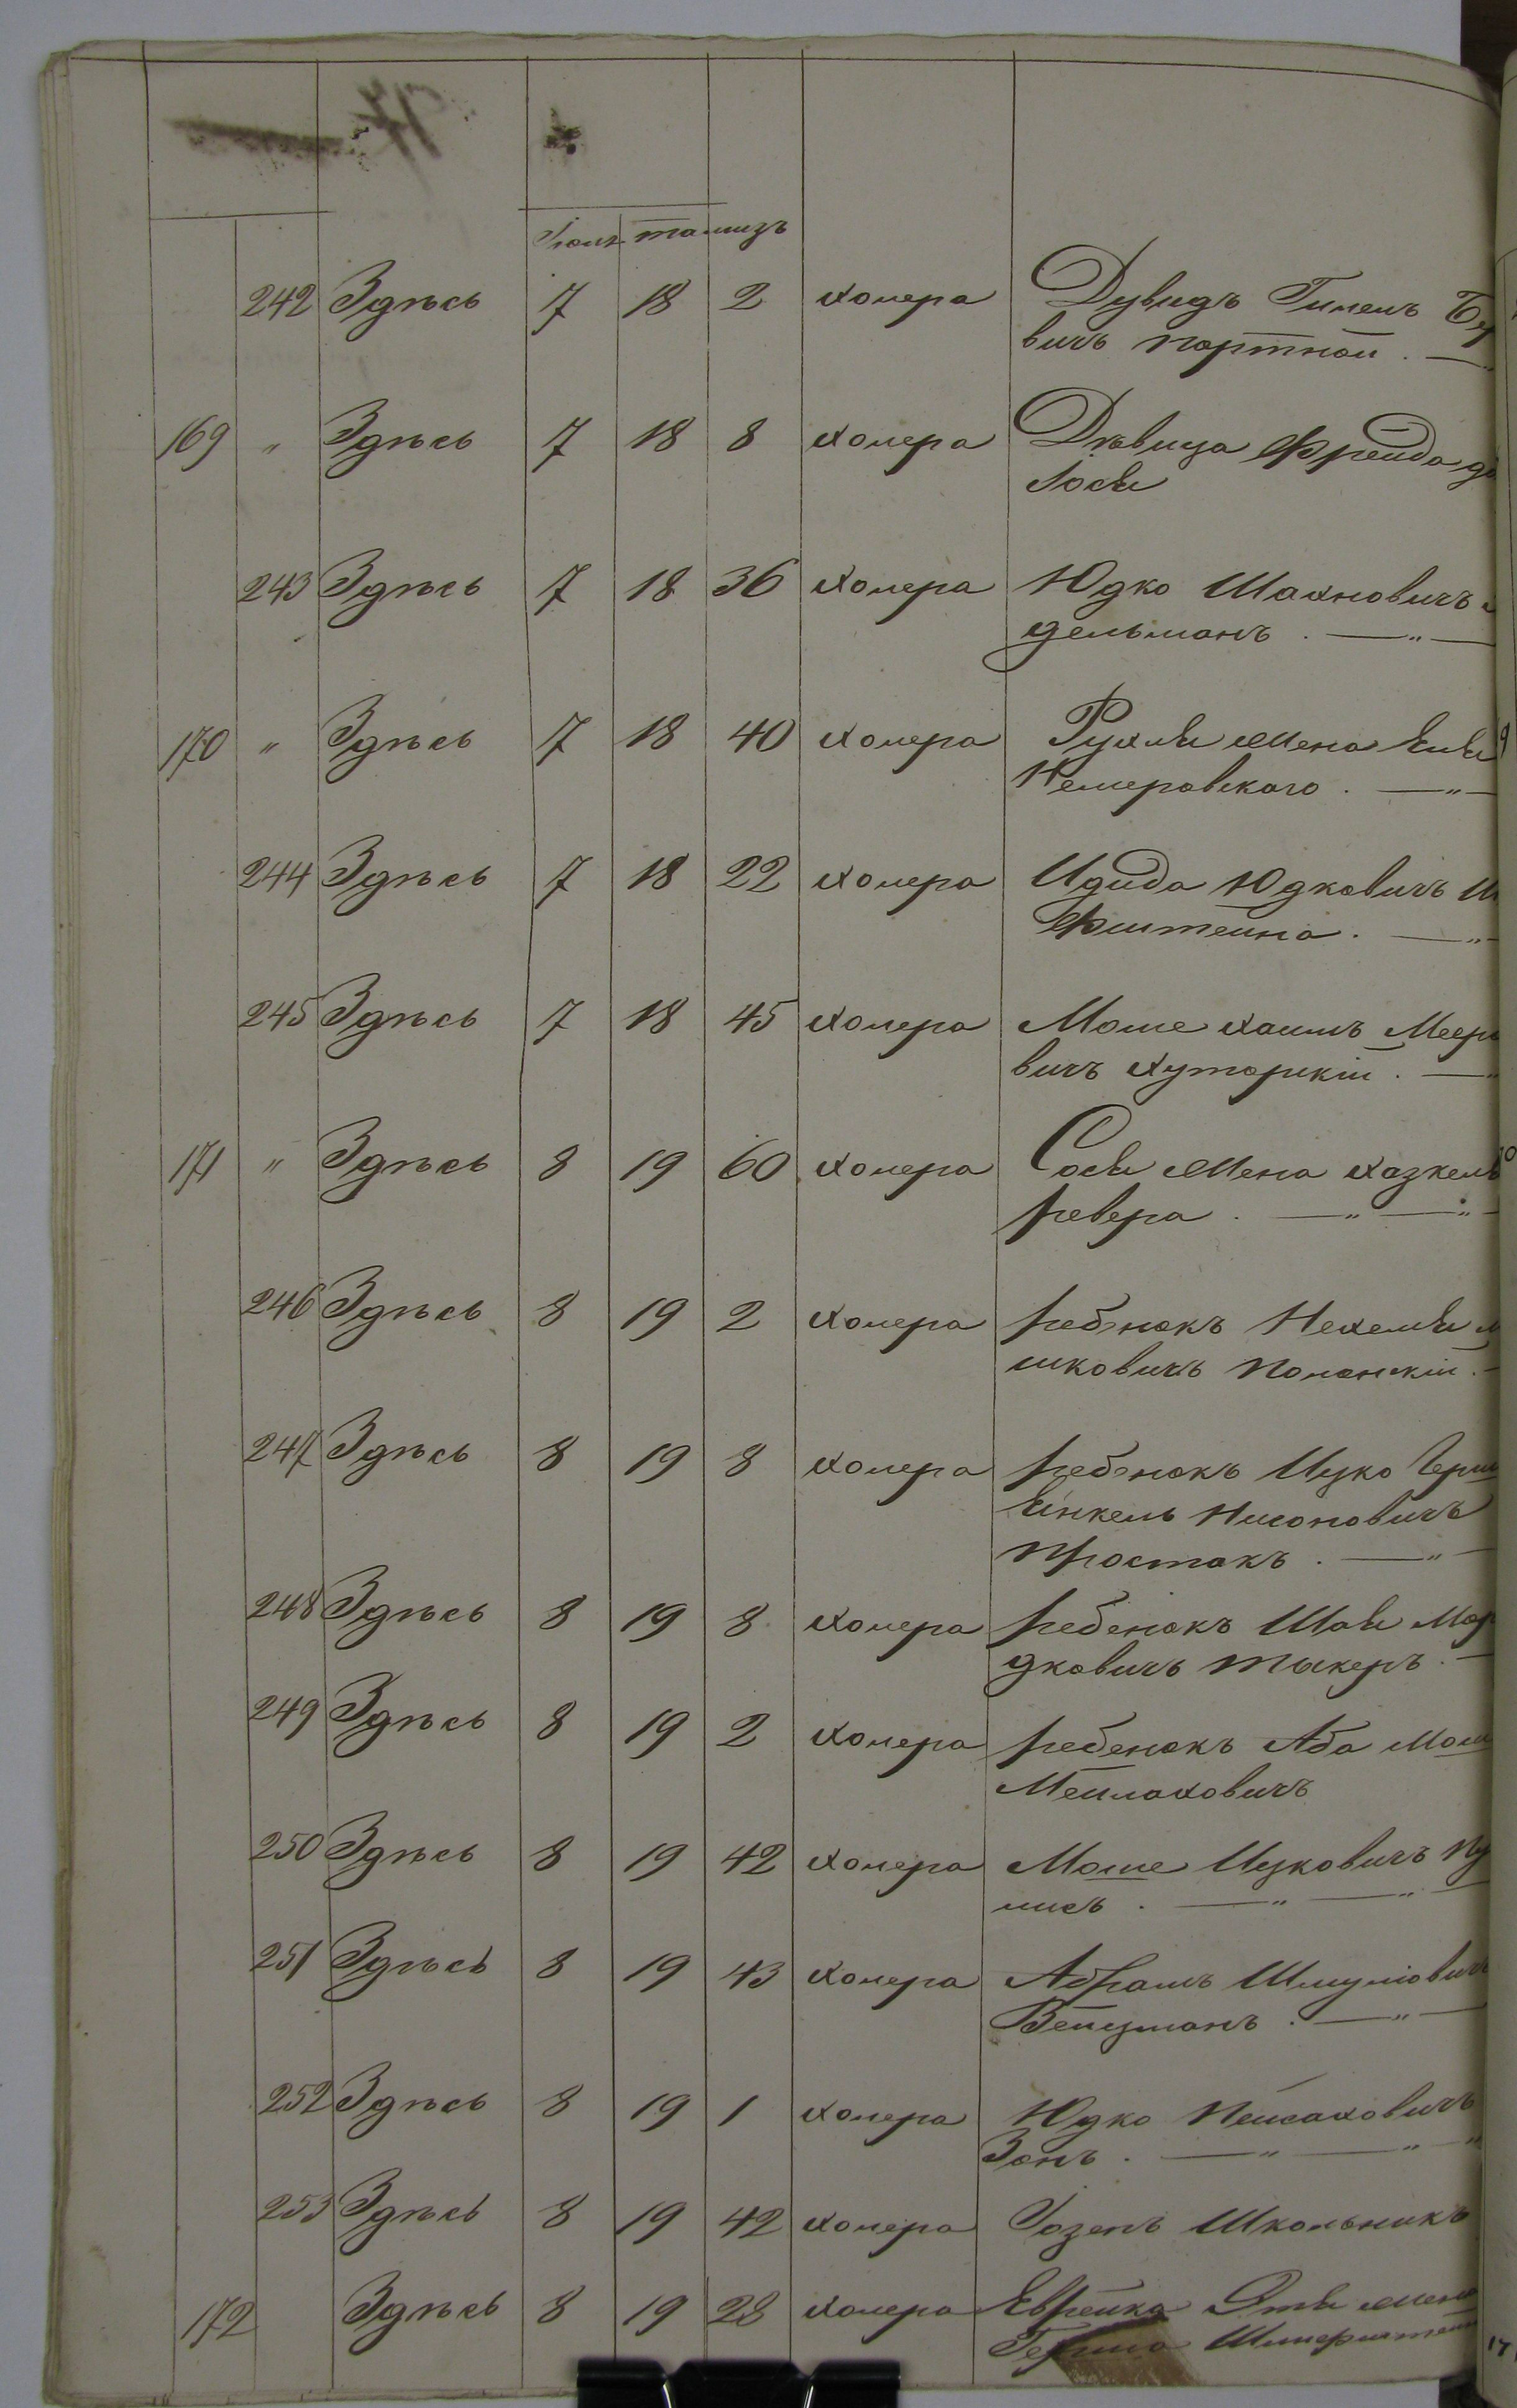 Іюнь тамизъ
242 Здѣсь 7 18 2 холера Дувидъ Гимель
вичъ портной . —
169 " Здѣсь 7 18 8 холера Дѣвица Фрейда
Іося
243 Здѣсь 7 18 36 холера Юдко Шахновичъ
дельманъ . — " —
170 " Здѣсь 7 18 40 холера Рухля жена
Немеровскаго . — " —
244 Здѣсь 7 18 22 холера Идида Юдковичъ
Фиштейна . — "
245 Здѣсь 7 18 45 холера Моше Хаимъ Меер
вичъ Хуторскій . — "
171 " Здѣсь 8 19 60 холера Сося жена Хазкель
ревера . — " — " —
246 Здѣсь 8 19 2 холера ребенокъ Нехемя
шковичъ Полонскій . —
247 Здѣсь 8 19 8 холера ребенокъ Ицко Герш
Янкель Нисоновичъ
Простакъ . — " —
248 Здѣсь 8 19 8 холера ребенокъ Шая Мор
дковичъ Токеръ . —
249 Здѣсь 8 19 2 холера ребенокъ Аба Мош
Мейлаховичъ
250 Здѣсь 8 19 42 холера Моше Ицковичъ
лисъ . — " — " —
251 Здѣсь 8 19 43 холера Абрамъ Шмулiовичъ
Вейцманъ . — " —
252 Здѣсь 8 19 1 холера Юдко Пейсаховичъ
Зонъ . — " — " — "
253 Здѣсь 8 19 42 холера Іозепъ Школьникъ
172 Здѣсь 8 19 28 холера Еврейка Этя жена